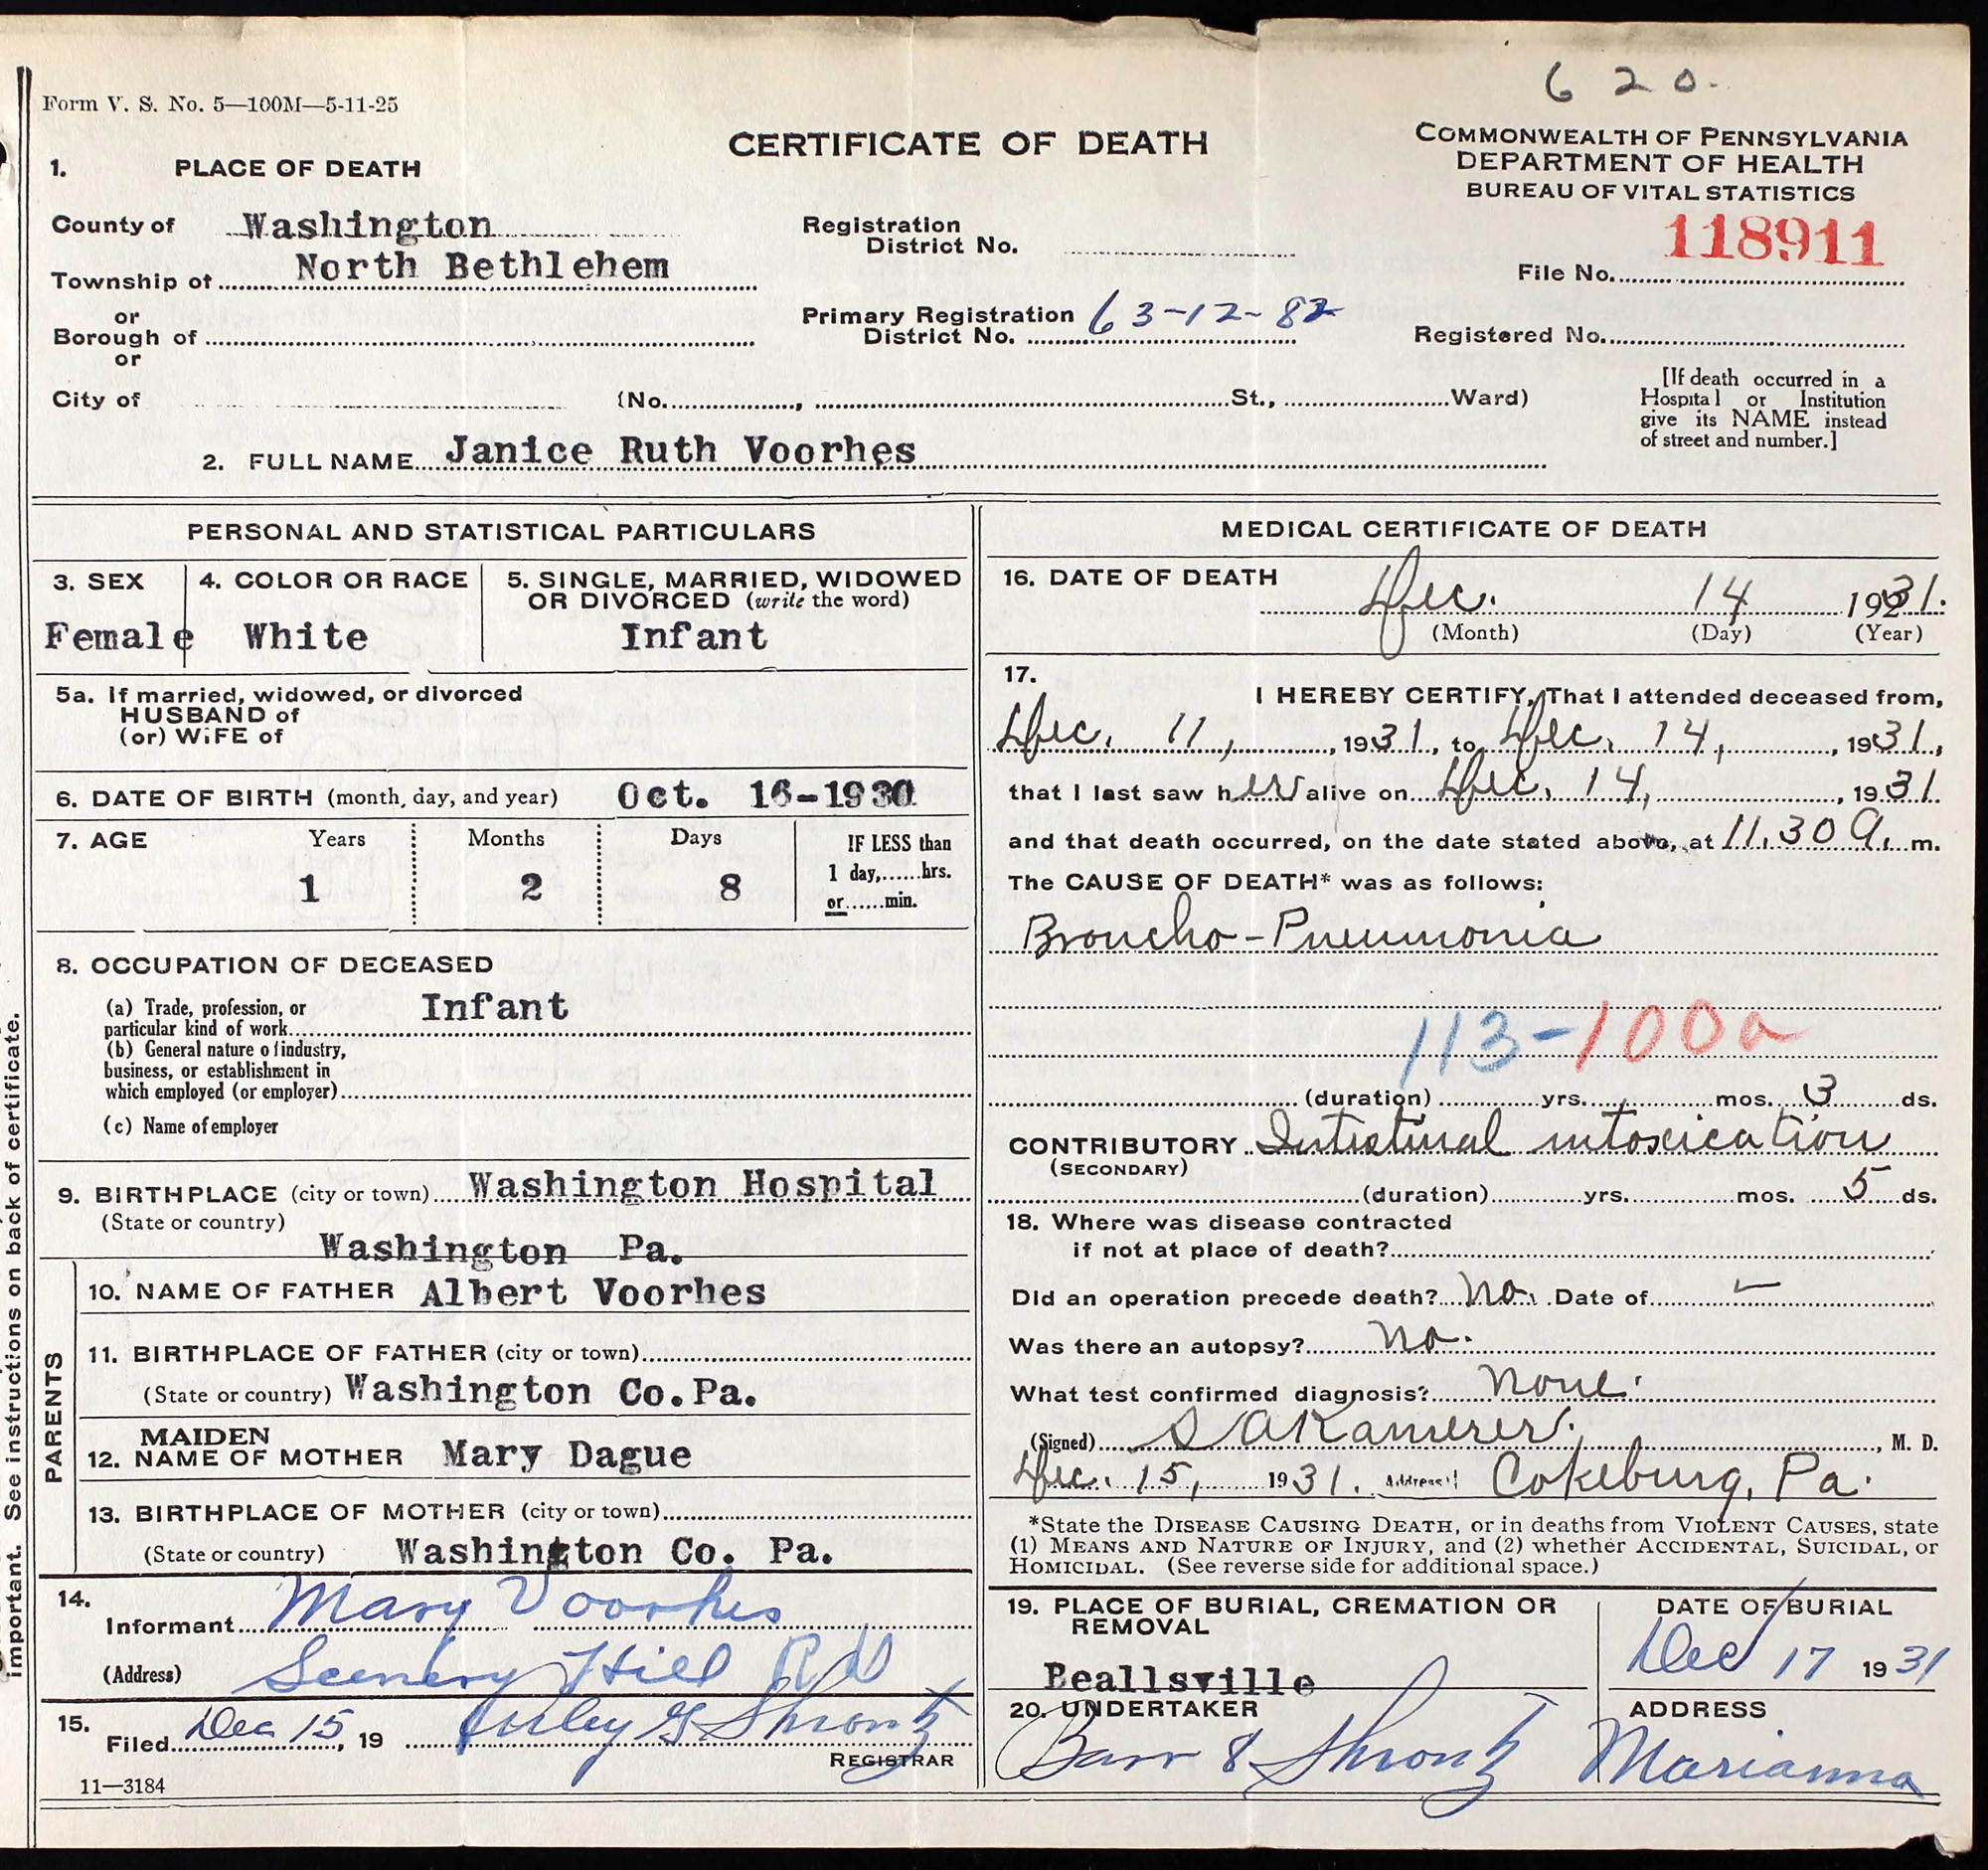 6 2 0.
Form V. S. No. 5—100M—5-11-25
CERTIFICATE OF DEATH
COMMONWEALTH OF PENNSYLVANIA
DEPARTMENT OF HEALTH
BUREAU OF VITAL STATISTICS
1. PLACE OF DEATH
County of Washington
Registration District No.
118911
File No.
Township of North Bethlehem
or
Borough of
or
Primary Registration District No. 63-12-82
Registered No.
City of (No. , St., Ward)
[If death occurred in a
Hospital or Institution
give its NAME instead
of street and number.]
2. FULL NAME Janice Ruth Voorhes
PERSONAL AND STATISTICAL PARTICULARS
3. SEX 4. COLOR OR RACE 5. SINGLE, MARRIED, WIDOWED
OR DIVORCED (write the word)
Female White Infant
5a. If married, widowed, or divorced
HUSBAND of
(or) WIFE of
6. DATE OF BIRTH (month, day, and year) Oct. 16-1930
7. AGE Years Months Days IF LESS than
1 day, hrs.
1 2 8 or min.
8. OCCUPATION OF DECEASED
(a) Trade, profession, or
particular kind of work Infant
(b) General nature of industry,
business, or establishment in
which employed (or employer)
(c) Name of employer
9. BIRTHPLACE (city or town) Washington Hospital
(State or country)
Washington Pa.
PARENTS
10. NAME OF FATHER Albert Voorhes
11. BIRTHPLACE OF FATHER (city or town)
(State or country) Washington Co. Pa.
MAIDEN
12. NAME OF MOTHER Mary Dague
13. BIRTHPLACE OF MOTHER (city or town)
(State or country) Washington Co. Pa.
14.
Informant Mary Voorhes
(Address) Scenery Hill R D
15.
Filed Dec 15, 19 G Shrontz
REGISTRAR
11—3184
MEDICAL CERTIFICATE OF DEATH
16. DATE OF DEATH Dec. 14 1931.
(Month) (Day) (Year)
17.
I HEREBY CERTIFY, That I attended deceased from,
Dec. 11, 1931, to Dec. 14, 1931,
that I last saw her alive on Dec. 14, 1931
and that death occurred, on the date stated above, at 11.30 a. m.
The CAUSE OF DEATH* was as follows:
Broncho-Pneumonia
113-100a
(duration) yrs. mos. 3 ds.
CONTRIBUTORY Intestinal intoxication
(SECONDARY)
(duration) yrs. mos. 5 ds.
18. Where was disease contracted
if not at place of death?
Did an operation precede death? no. Date of —
Was there an autopsy? no.
What test confirmed diagnosis? none.
(Signed) S A Kamerer. , M. D.
Dec. 15, 1931. Address Cokeburg, Pa.
*State the DISEASE CAUSING DEATH, or in deaths from VIOLENT CAUSES, state
(1) MEANS AND NATURE OF INJURY, and (2) whether ACCIDENTAL, SUICIDAL, or
HOMICIDAL. (See reverse side for additional space.)
19. PLACE OF BURIAL, CREMATION OR
REMOVAL
Beallsville
DATE OF BURIAL
Dec 17 1931
20. UNDERTAKER
Barr & Shrontz
ADDRESS
Marianna
important. See instructions on back of certificate.